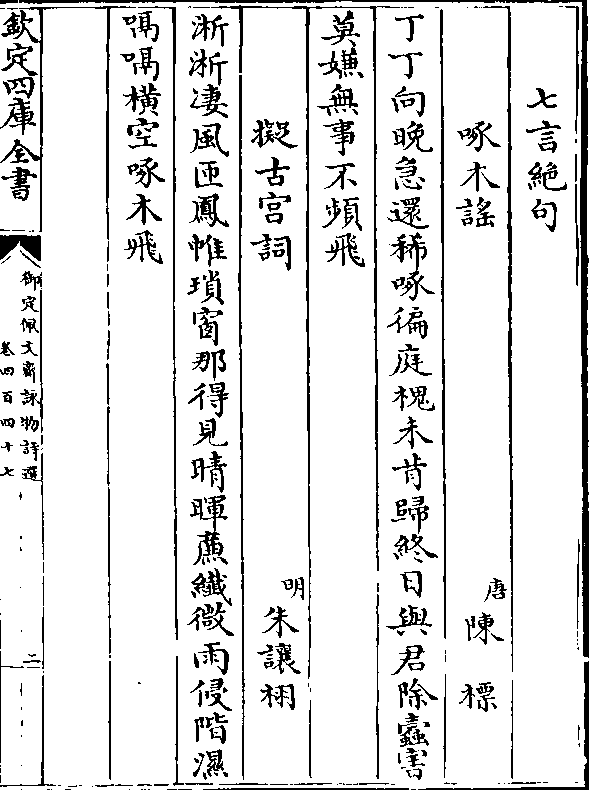 七言絶句
啄木謠
唐陳標
丁丁向晚急還稀啄徧庭槐未肯歸終日與君除蠧害
莫嫌無事不頻飛
擬古宫詞
明朱讓栩
淅淅凄風匝鳳帷瑣窗那得見晴暉纎微雨侵階濕
喎喎橫空啄木飛
欽定四庫全書
御定佩文齋詠物詩選
卷四百四十七
二